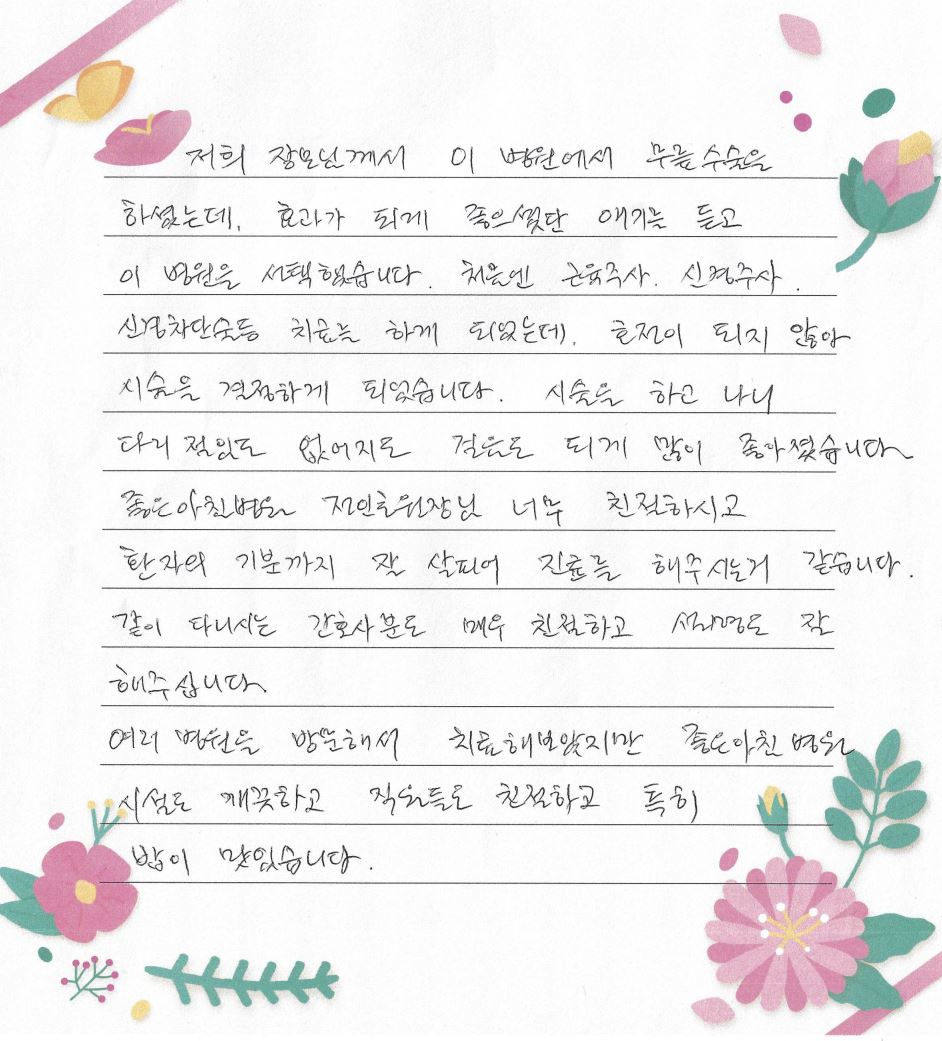 저희 장모님께서 이 병원에서 무릎수술을
하셨는데, 효과가 되게 좋으셨단 얘기를 듣고
이 병원을 선택했습니다. 처음엔 근육주사. 신경주사.
신경차단술등 치료를 하게 되었는데, 호전이 되지 않아
시술을 결정하게 되었습니다. 시술을 하고 나니
다리 절임도 없어지도 걸음도 되게 많이 좋아졌습니다
좋은아침병원 원장님 너무 친절하시고
환자의 기분까지 잘 살피어 진료를 해주시는거 같습니다.
같이 다니시는 간호사분도 매우 친절하고 설명도 잘
해주십니다.
여러 병원을 방문해서 치료해보았지만 좋은아침 병원
시설도 깨끗하고 직원들도 친절하고 특히
밥이 맛있습니다.